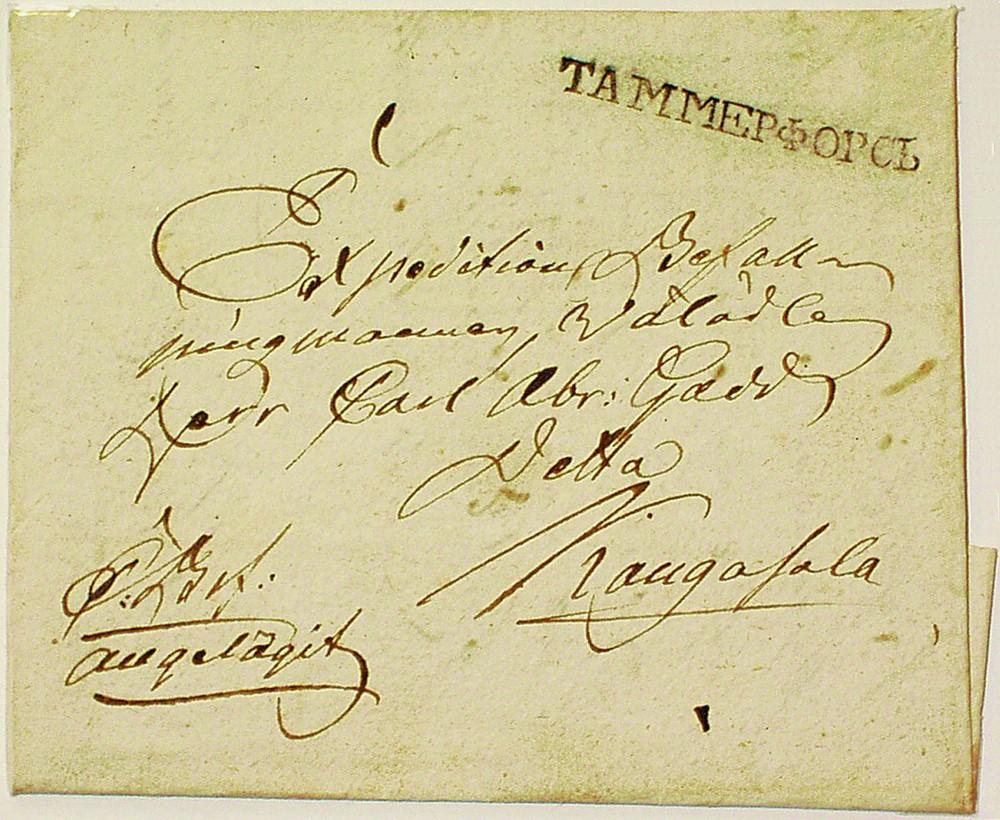 ТАММЕРФОРСЬ
Expeditions Befall-
ningmannen Wälädle
Herr Carl Abr: Gadd
Detta
Kangasala
Bref:
angelägit